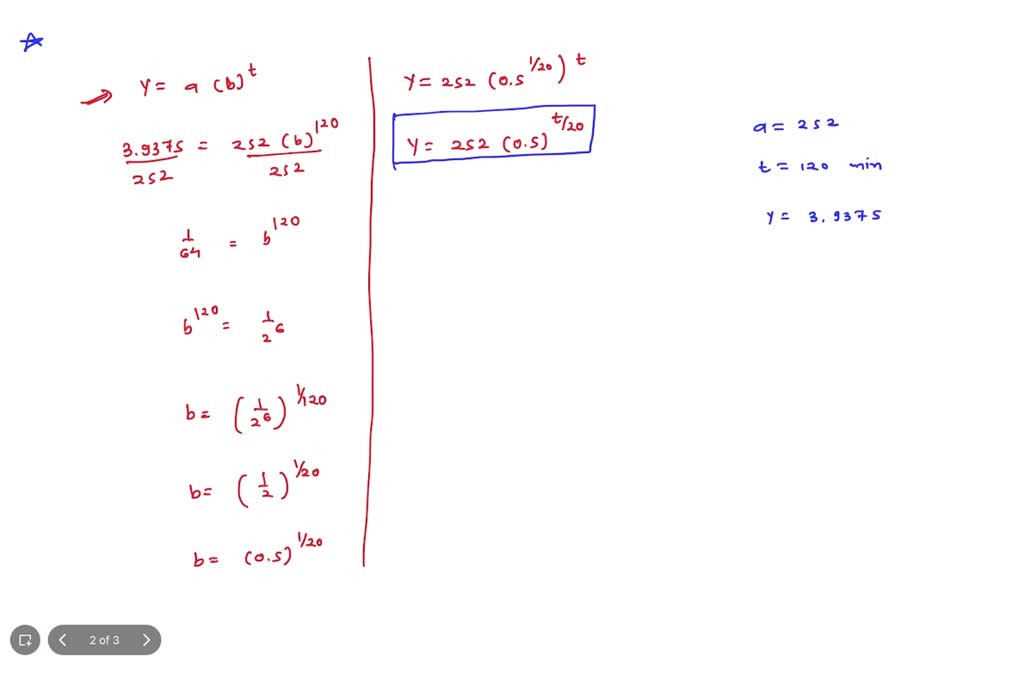 Y = a (b)^t
3.9375/252 = 252 (b)^120/252
1/64 = b^120
b^120 = 1/2^6
b = (1/2^6)^1/120
b = (1/2)^1/20
b = (0.5)^1/20
Y = 252 (0.5^1/20)^t
Y = 252 (0.5)^t/20
a = 252
t = 120 min
Y = 3.9375
2 of 3